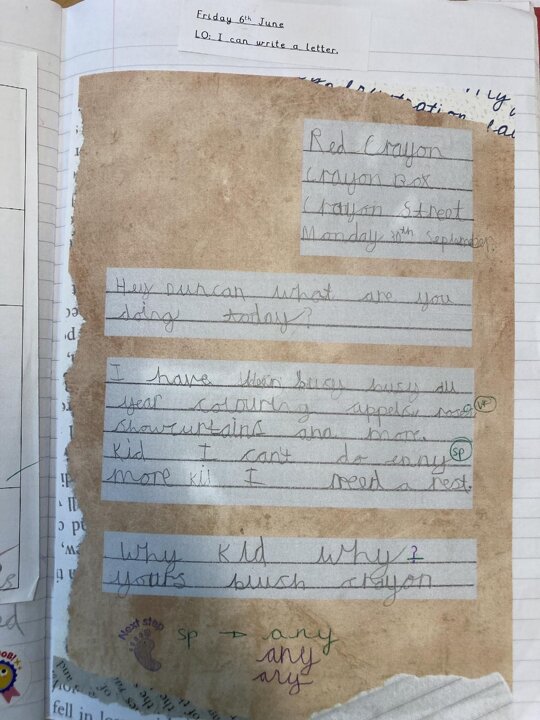 Friday 6th June
LO: I can write a letter.
Red Crayon
Crayon Box
Crayon Street
Monday 30th September
Hey Duncan what are you
doing today?
I have been busy busy all
year colouring appels
showcurtains and more.
Kid I cant do enny
sp
more kid I need a rest.
Why kid why?
yours blush crayon
Next step
sp → any
any
any
fell in